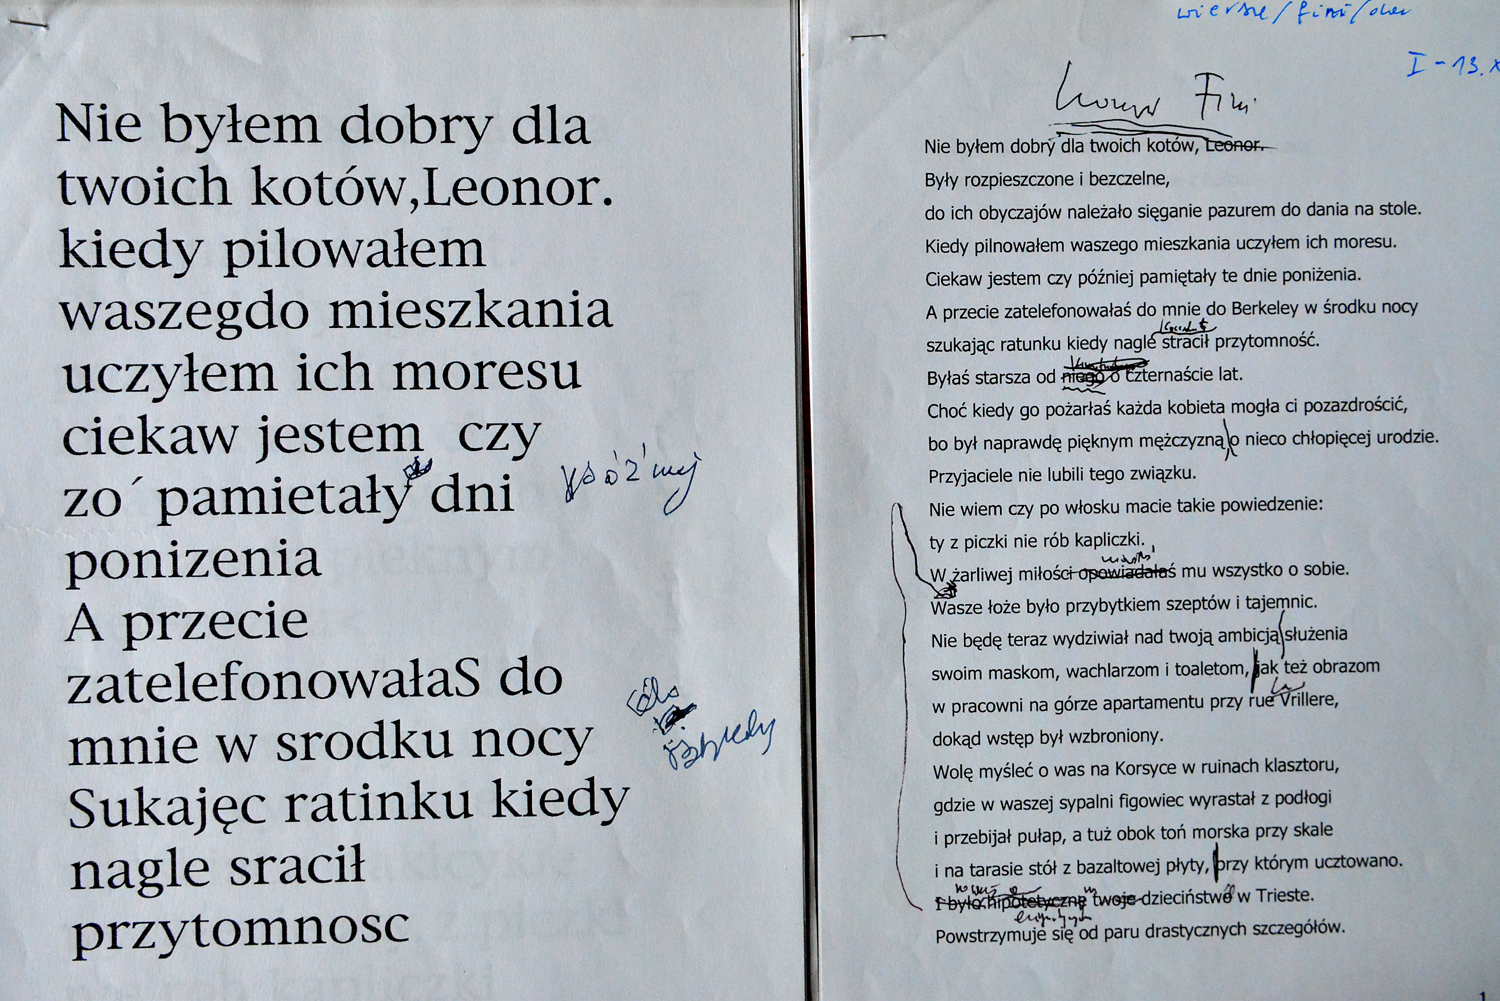 Nie byłem dobry dla
twoich kotów,Leonor.
kiedy pilowałem
waszegdo mieszkania
uczyłem ich moresu
ciekaw jestem czy
zo´ pamietały dni
ponizenia
A przecie
zatelefonowałaS do
mnie w srodku nocy
Sukajęc ratinku kiedy
nagle sracił
przytomnosc
wiersze/fini/
I - 13.x
Leonor Fini
Nie byłem dobry dla twoich kotów, Leonor.
Były rozpieszczone i bezczelne,
do ich obyczajów należało sięganie pazurem do dania na stole.
Kiedy pilnowałem waszego mieszkania uczyłem ich moresu.
Ciekaw jestem czy później pamiętały te dnie poniżenia.
A przecie zatelefonowałaś do mnie do Berkeley w środku nocy
szukając ratunku kiedy nagle stracił przytomność.
Byłaś starsza od niego o czternaście lat.
Choć kiedy go pożarłaś każda kobieta mogła ci pozazdrościć,
bo był naprawdę pięknym mężczyzną o nieco chłopięcej urodzie.
Przyjaciele nie lubili tego związku.
Nie wiem czy po włosku macie takie powiedzenie:
ty z piczki nie rób kapliczki.
W żarliwej miłości opowiadałaś mu wszystko o sobie.
Wasze łoże było przybytkiem szeptów i tajemnic.
Nie będę teraz wydziwiał nad twoją ambicją służenia
swoim maskom, wachlarzom i toaletom, jak też obrazom
w pracowni na górze apartamentu przy rue Vrillere,
dokąd wstęp był wzbroniony.
Wolę myśleć o was na Korsyce w ruinach klasztoru,
gdzie w waszej sypalni figowiec wyrastał z podłogi
i przebijał pułap, a tuż obok toń morska przy skale
i na tarasie stół z bazaltowej płyty, przy którym ucztowano.
I było hipotetyczne twoje dzieciństwo w Trieste.
Powstrzymuje się od paru drastycznych szczegółów.
1